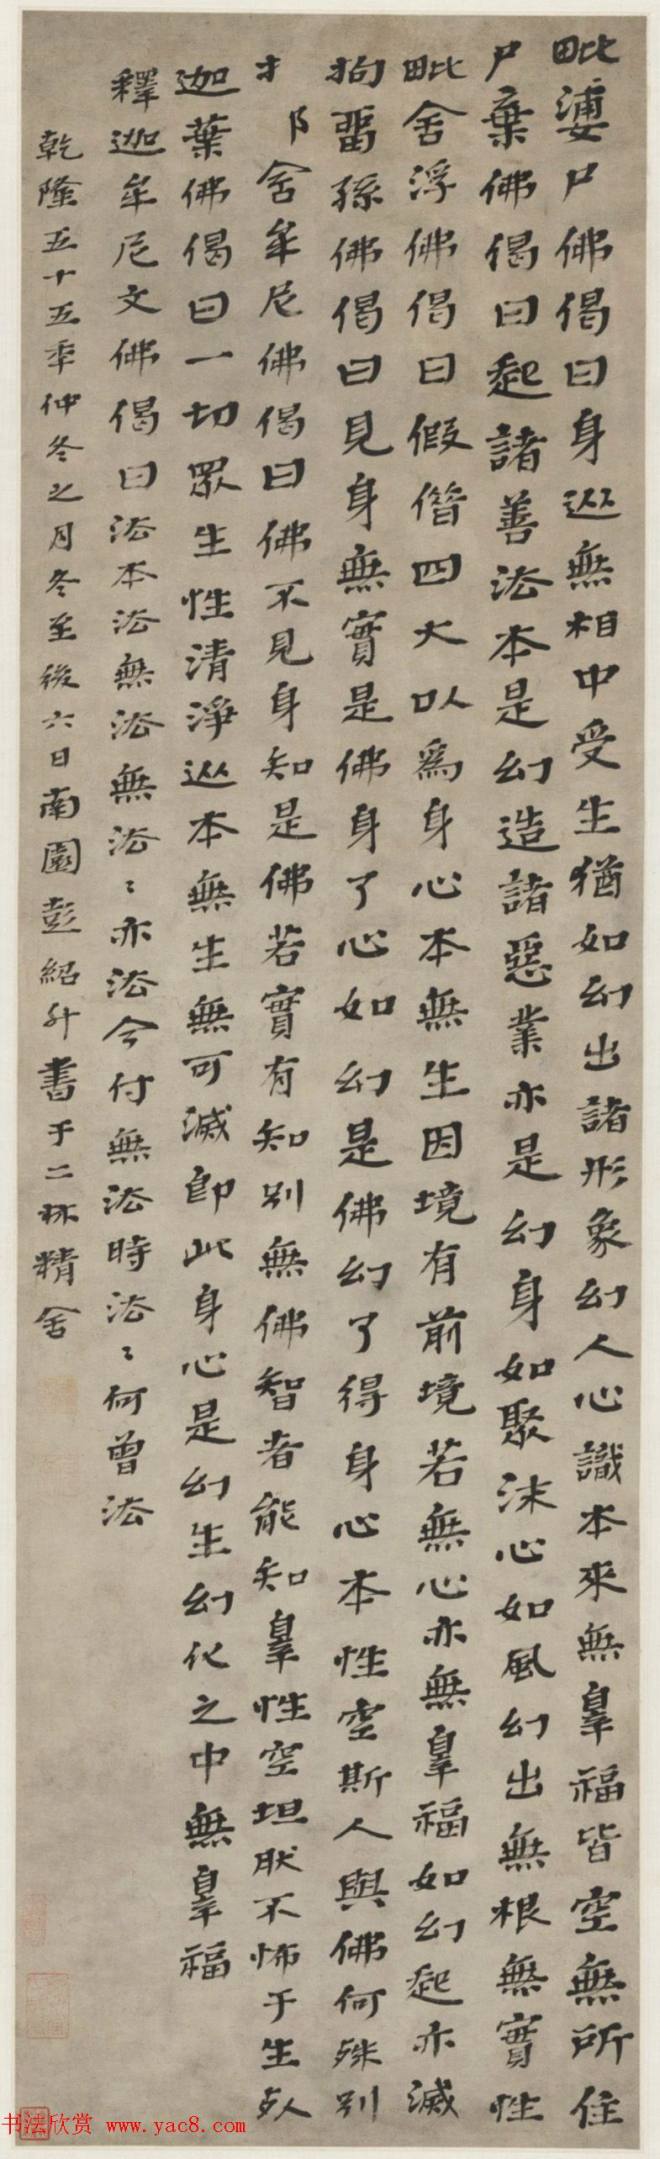 毗婆尸佛偈曰身從無相中受生猶如幻出諸形象幻人心識本來無辠福皆空無所住
尸棄佛偈曰起諸善法本是幻造諸惡業亦是幻身如聚沫心如風幻出無根無實性
毗舍浮佛偈曰假借四大以爲身心本無生因境有前境若無心亦無辠福如幻起亦滅
拘留孫佛偈曰見身無實是佛身了心如幻是佛幻了得身心本性空斯人與佛何殊別
舍牟尼佛偈曰佛不見身知是佛若實有知別無佛智者能知辠性空坦肰不怖于生死
迦葉佛偈曰一切眾生性清淨從本無生無可滅即此身心是幻生幻化之中無辠福
釋迦牟尼文佛偈曰法本法無法無法〻亦法今付無法時法〻何曾法
乾隆五十五年仲冬之月冬至後六日南園彭紹升書于二林精舍
书法欣赏 www.yac8.com